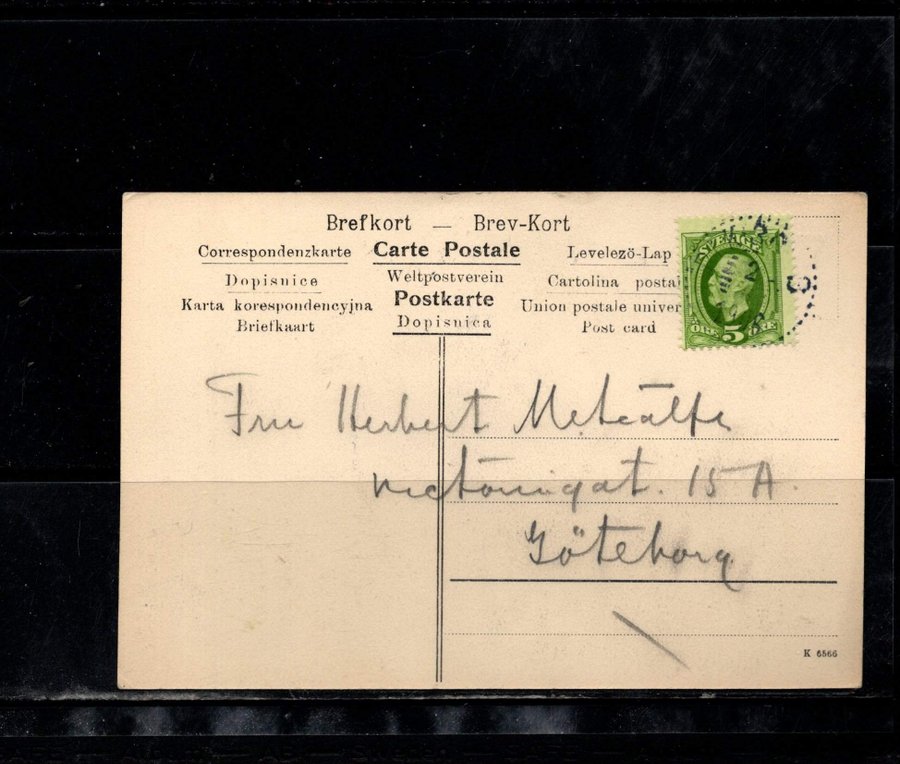 Brefkort — Brev-Kort
Correspondenzkarte Carte Postale Levelezö-Lap
Dopisnice Weltpostverein Cartolina postal
Karta korespondencyjna Postkarte Union postale univer
Briefkaart Dopisnica Post card
SVERIGE
ÖRE 5 ÖRE
Fru Herbert Metcalfe
Victoriagat. 15 A.
Göteborg
K 6566